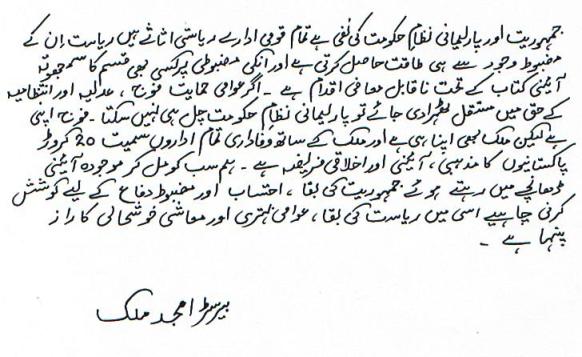 جمہوریت اور پارلیمانی نظامِ حکومت کی نفی ہے تمام قومی ادارے ریاستی اثاثے ہیں ریاست اِن کے
مضبوط وجود سے ہی طاقت حاصل کرتی ہے اور انکی مضبوطی پر کسی بھی قسم کا سمجھوتہ
آئینی کتاب کے تحت ناقابل معافی اقدام ہے ۔ اگر عوامی حمایت فوج، عدلیہ اور انتظامیہ
کے حق میں مستقل ٹھہرا دی جائے تو پارلیمانی نظامِ حکومت چل ہی نہیں سکتا۔ فوج اپنی
ہے لیکن ملک بھی اپنا ہی ہے اور ملک کے ساتھ وفاداری تمام اداروں سمیت 20 کروڑ
پاکستانیوں کا مذہبی، آئینی اور اخلاقی فریضہ ہے ۔ ہم سب کو مل کر موجودہ آئینی
ڈھانچے میں رہتے ہوئے جمہوریت کی بقا، احتساب اور مضبوط دفاع کے لیے کوشش
کرنی چاہیے اسی میں ریاست کی بقا، عوامی بہتری اور معاشی خوشحالی کا راز
پنہا ہے ۔
بیرسٹر امجد ملک